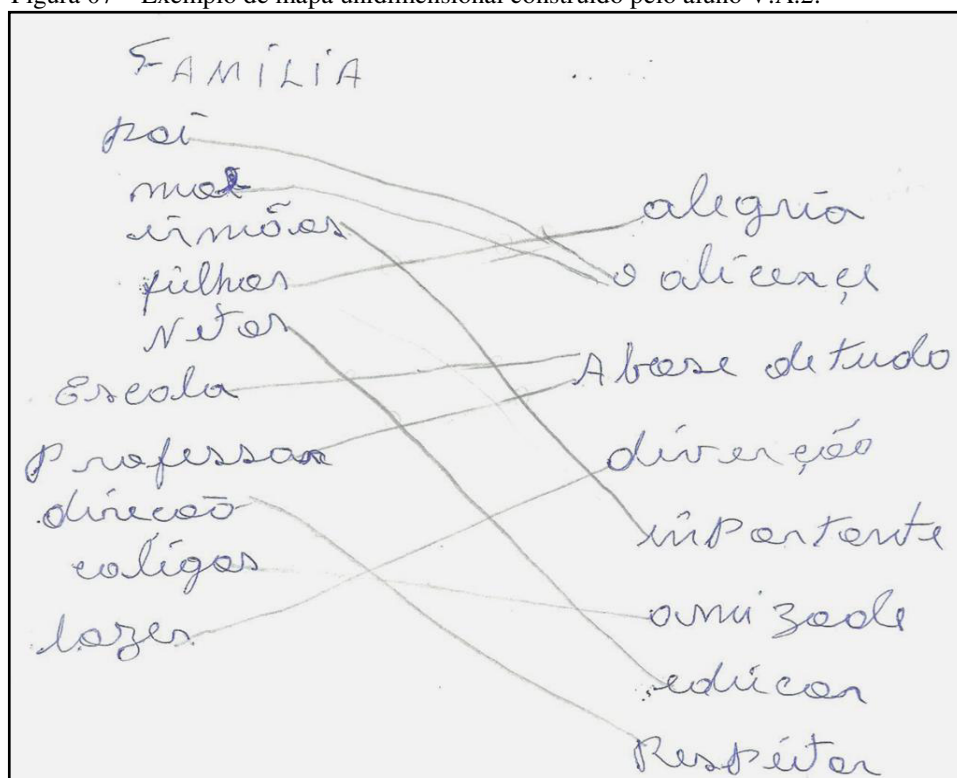 Figura 07 – Exemplo de mapa unidimensional construído pelo aluno V.A.2.
FAMÍLIA
pai
mae
irmãos
filhos
Netos
Escola
Professor
direcaõ
coligas
lazer
alegria
o alicerçe
A base de tudo
diverção
inportante
amizade
educar
Respeitar